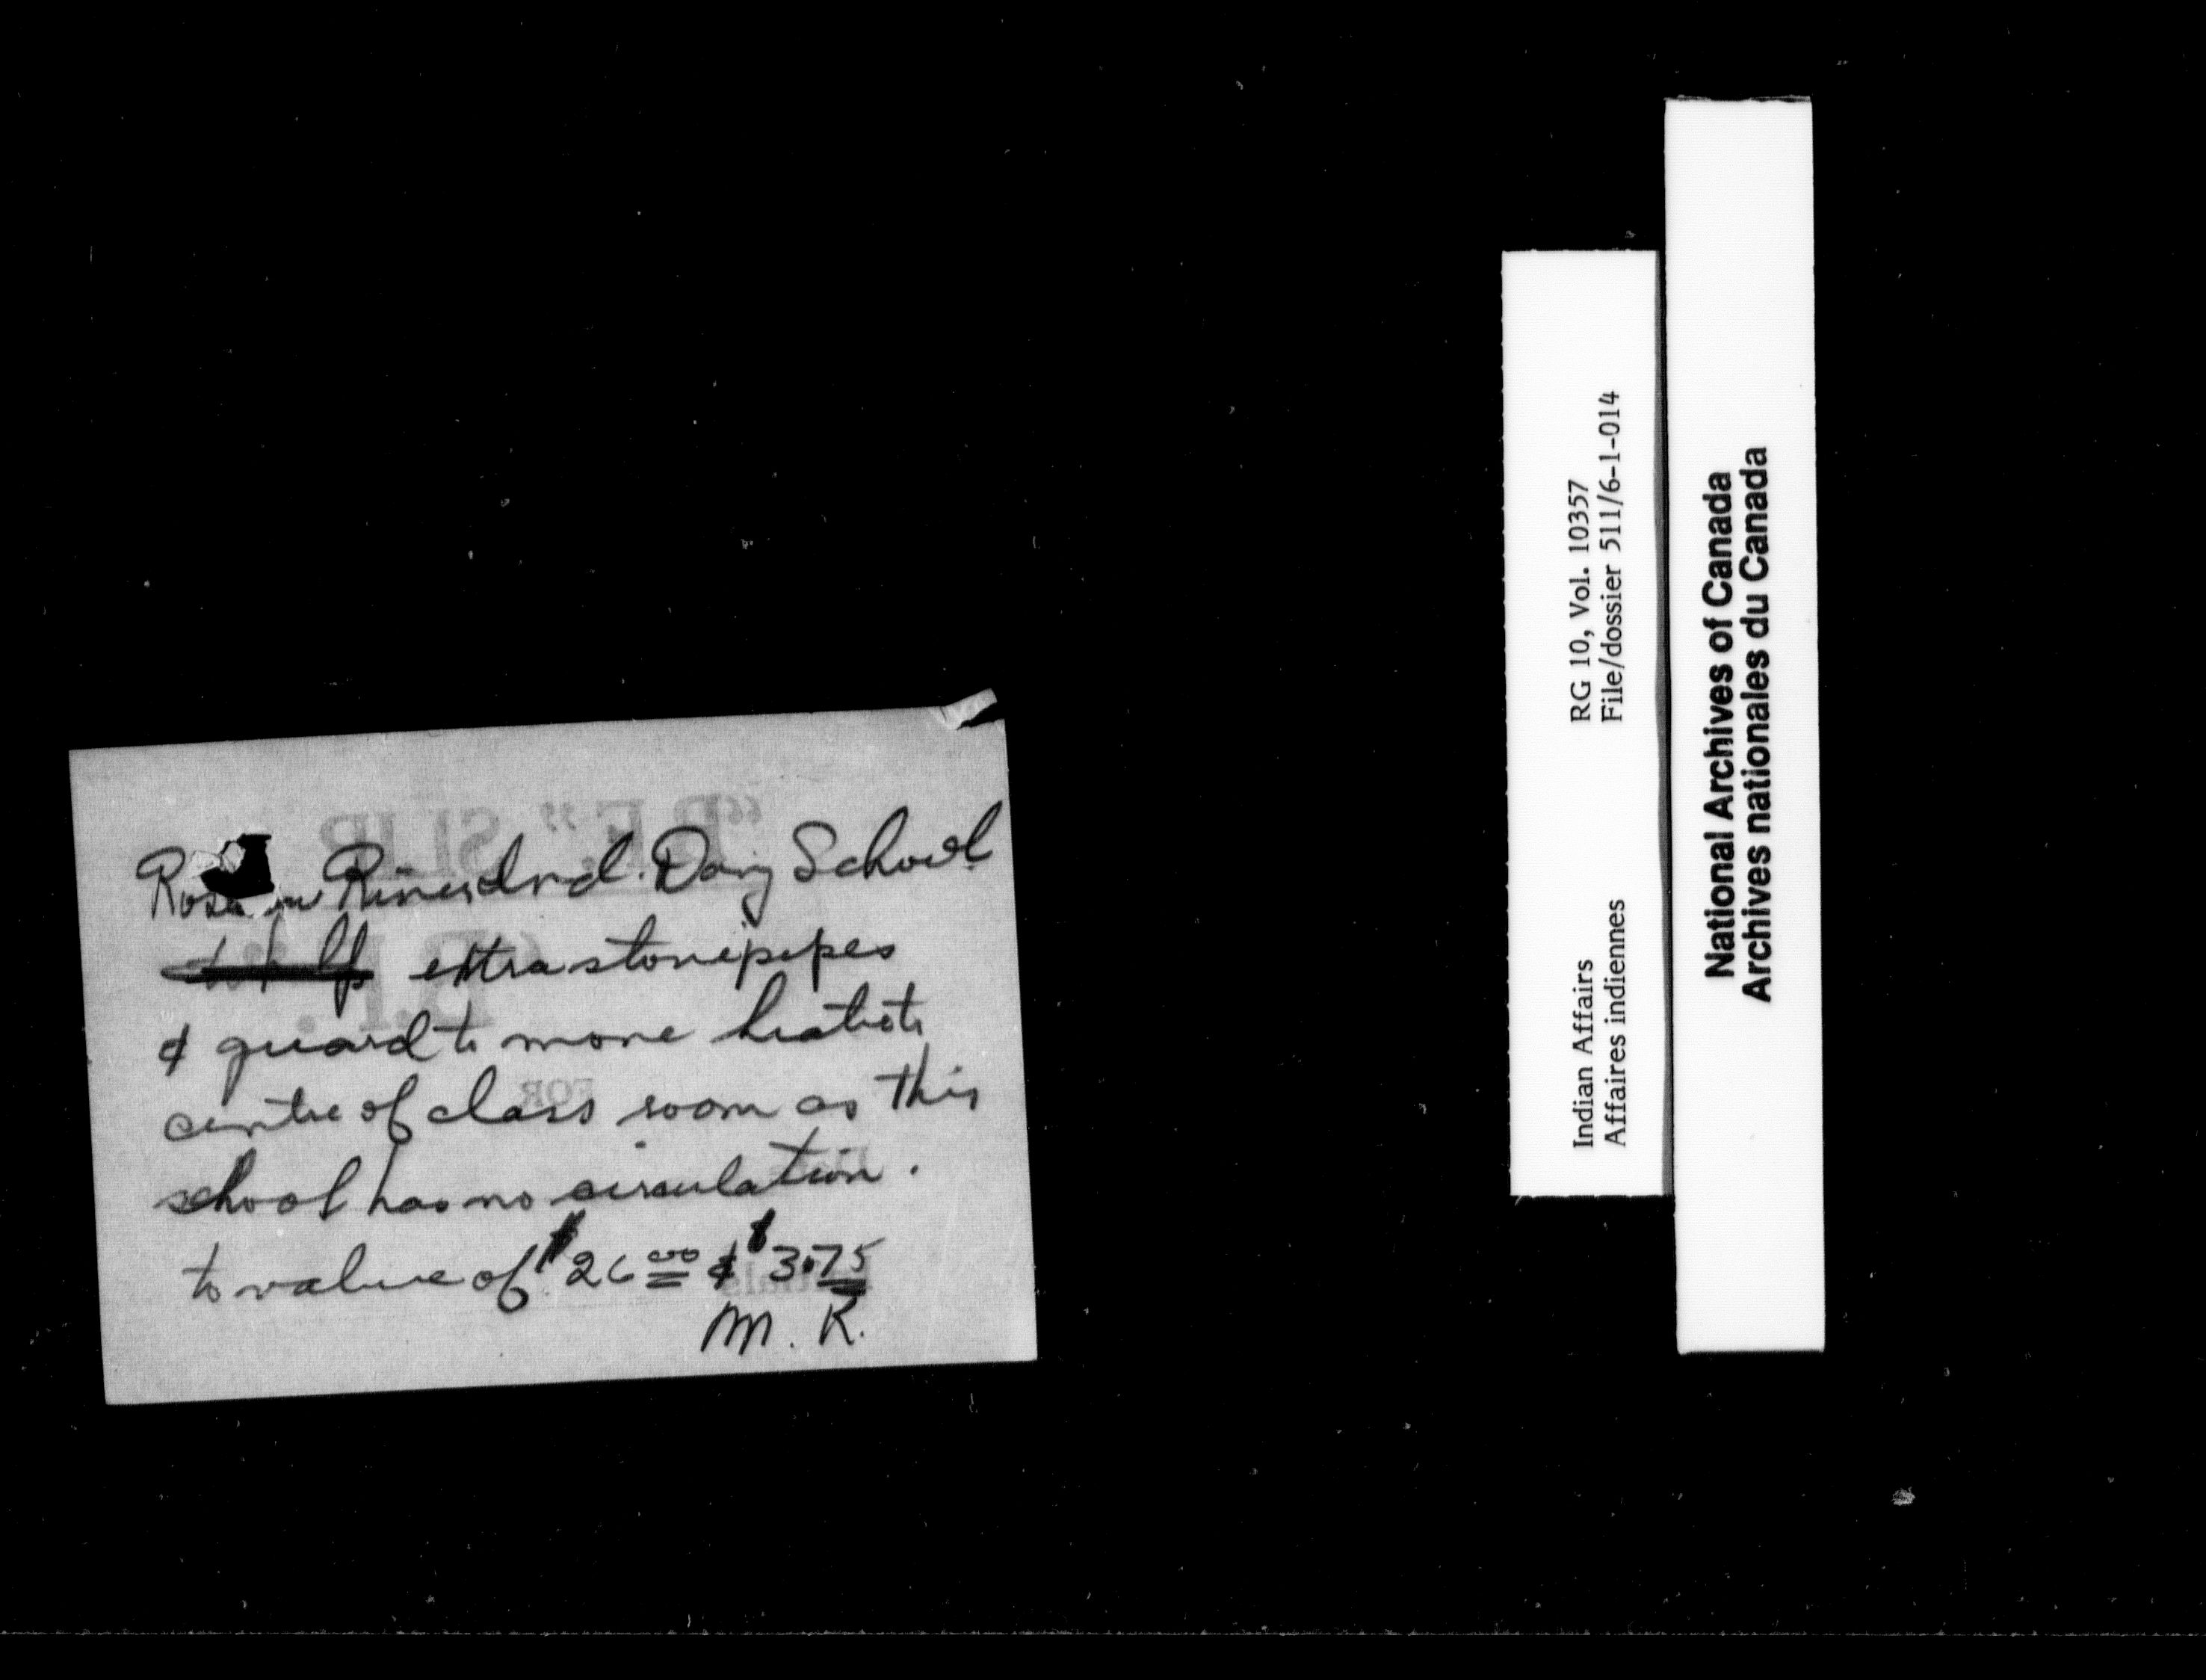 Roseau River Ind. Day School
extra stovepipes
& guard to move heater to
centre of class room as this
school has no circulation.
to value of $26.00 & $3.75
M. R.
"B.F." SLIP
"B.F."
FOR
Initials
Indian Affairs RG 10, Vol. 10357
Affaires indiennes File/dossier 511/6-1-014
National Archives of Canada
Archives nationales du Canada